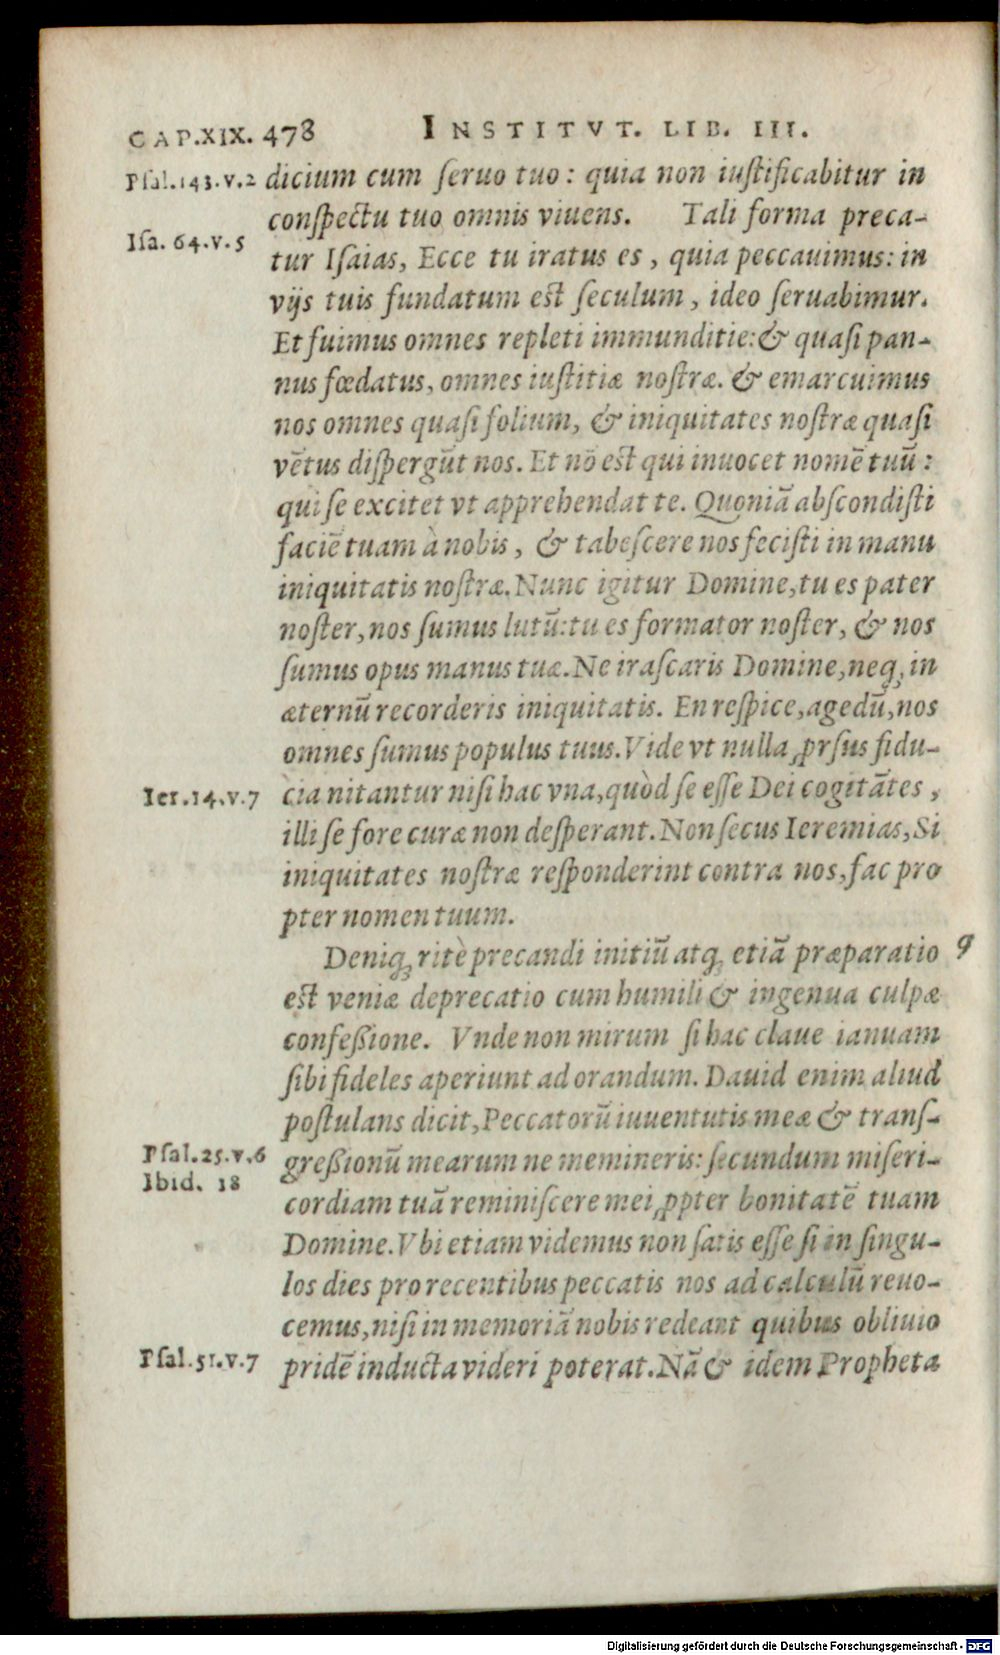 CAP.XIX. 478 INSTITVT. LIB. III.
Pſal.143.v.2 dicium cum ſeruo tuo: quia non iuſtificabitur in
conſpectu tuo omnis viuens. Tali forma preca-
Iſa. 64.v.5
tur Iſaias, Ecce tu iratus es, quia peccauimus: in
vijs tuis fundatum eſt ſeculum, ideo ſeruabimur.
Et fuimus omnes repleti immunditie: & quaſi pan-
nus fœdatus, omnes iuſtitiæ noſtræ. & emarcuimus
nos omnes quaſi folium, & iniquitates noſtræ quaſi
vētus diſpergūt nos. Et nō eſt qui inuocet nomē tuū:
qui ſe excitet vt apprehendat te. Quoniā abſcondiſti
faciē tuam à nobis, & tabeſcere nos feciſti in manu
iniquitatis noſtræ. Nunc igitur Domine, tu es pater
noſter, nos ſumus lutū: tu es formator noſter, & nos
ſumus opus manus tuæ. Ne iraſcaris Domine, neq; in
æternū recorderis iniquitatis. En reſpice, agedū, nos
omnes ſumus populus tuus. Vide vt nulla ꝓrſus fidu-
Ier.14.v.7 cia nitantur niſi hac vna, quòd ſe eſſe Dei cogitātes,
illi ſe fore curæ non deſperant. Non ſecus Ieremias, Si
iniquitates noſtræ reſponderint contra nos, fac pro
pter nomen tuum.
Deniq; ritè precandi initiū atq; etiā præparatio 9
eſt veniæ deprecatio cum humili & ingenua culpæ
confeßione. Vnde non mirum ſi hac claue ianuam
ſibi fideles aperiunt ad orandum. Dauid enim aliud
poſtulans dicit, Peccatorū iuuentutis meæ & tranſ-
Pſal.25.v.6 greßionū mearum ne memineris: ſecundum miſeri-
Ibid. 18
cordiam tuā reminiſcere mei ꝓpter bonitatē tuam
Domine. Vbi etiam videmus non ſatis eſſe ſi in ſingu-
los dies pro recentibus peccatis nos ad calculū reuo-
cemus, niſi in memoriā nobis redeant quibus obliuio
Pſal.51.v.7 pridē inducta videri poterat. Nā & idem Propheta
Digitalisierung gefördert durch die Deutsche Forschungsgemeinschaft - DFG